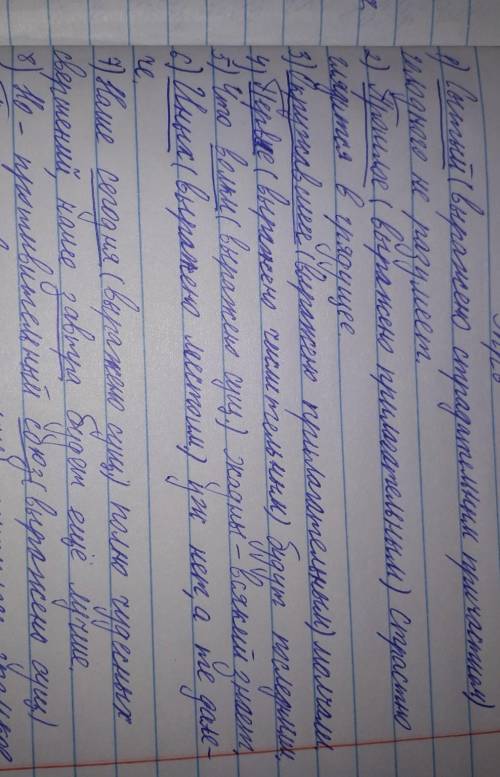 1) Сытый (выражено страдательным причастием)
голодного не разумеет.
2) Прошлое (выражено прилагательным) страстно
глядится в грядущее.
3) (выражено прилагательным) молчали
4) Первые (выражено числительным) будут последними.
5) Что волки (выражено сущ.) жадны - всякий знает,
6) Иных (выражено местоим.) уж нет, а те дале-
че.
7) Наше сегодня (выражено сущ) полно чудесных
свершений, наше завтра будет ещё лучше.
8) Но - противительный союз (выражено сущ)